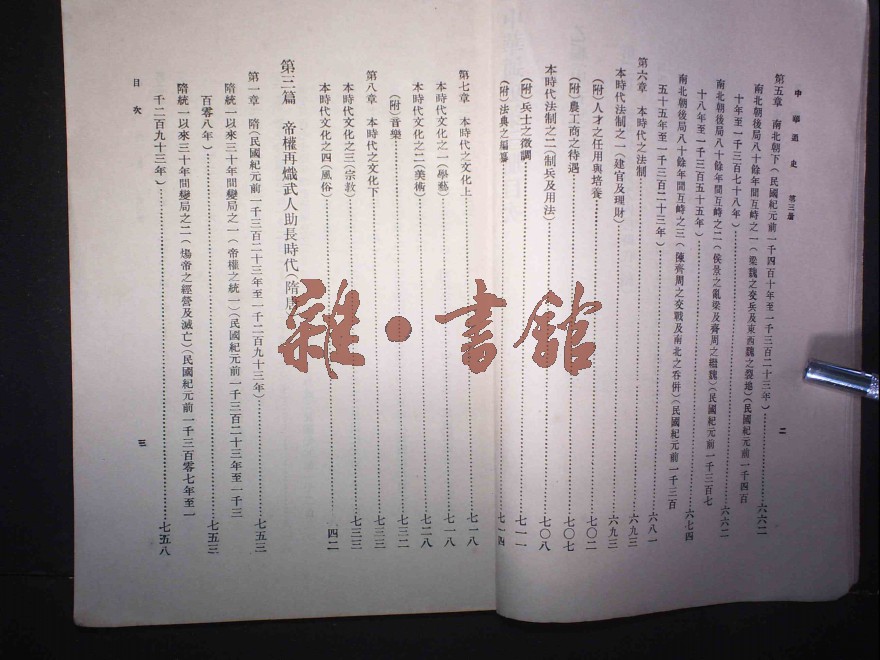 中華通史 第三冊
二
第五章 南北朝下(民國紀元前一千四百十年至一千三百二十三年)……六六二
南北朝後局八十餘年間互峙之一(梁魏之交兵及東西魏之裂地)(民國紀元前一千四百
十年至一千三百七十八年)……六六二
南北朝後局八十餘年間互峙之二(侯景之亂梁及齊周之繼魏)(民國紀元前一千三百七
十八年至一千三百五十五年)……六七四
南北朝後局八十餘年間互峙之三(陳齊周之交戰及南北之吞併)(民國紀元前一千三百
五十五年至一千三百二十三年)……六八一
第六章 本時代之法制……六九三
本時代法制之一(建官及理財)……六九三
(附)人才之任用與培養……七〇二
(附)農工商之待遇……七〇七
本時代法制之二(制兵及用法)……七〇八
(附)兵士之徵調……七一一
(附)法典之編纂……七一四
第七章 本時代之文化上……七一八
本時代文化之一(學藝)……七一八
本時代文化之二(美術)……七二八
(附)音樂……七三二
第八章 本時代之文化下……七三三
本時代文化之三(宗教)……七三三
本時代文化之四(風俗)……四二
第三篇 帝權再熾武人助長時代(隋唐
第一章 隋(民國紀元前一千三百二十三年至一千二百九十三年)……七五三
隋統一以來三十年間變局之一(帝權之統一)(民國紀元前一千三百二十三年至一千三
百零八年)……七五三
隋統一以來三十年間變局之二(煬帝之經營及滅亡)(民國紀元前一千三百零七年至一
千二百九十三年)……七五八
目次
三
雜·書館